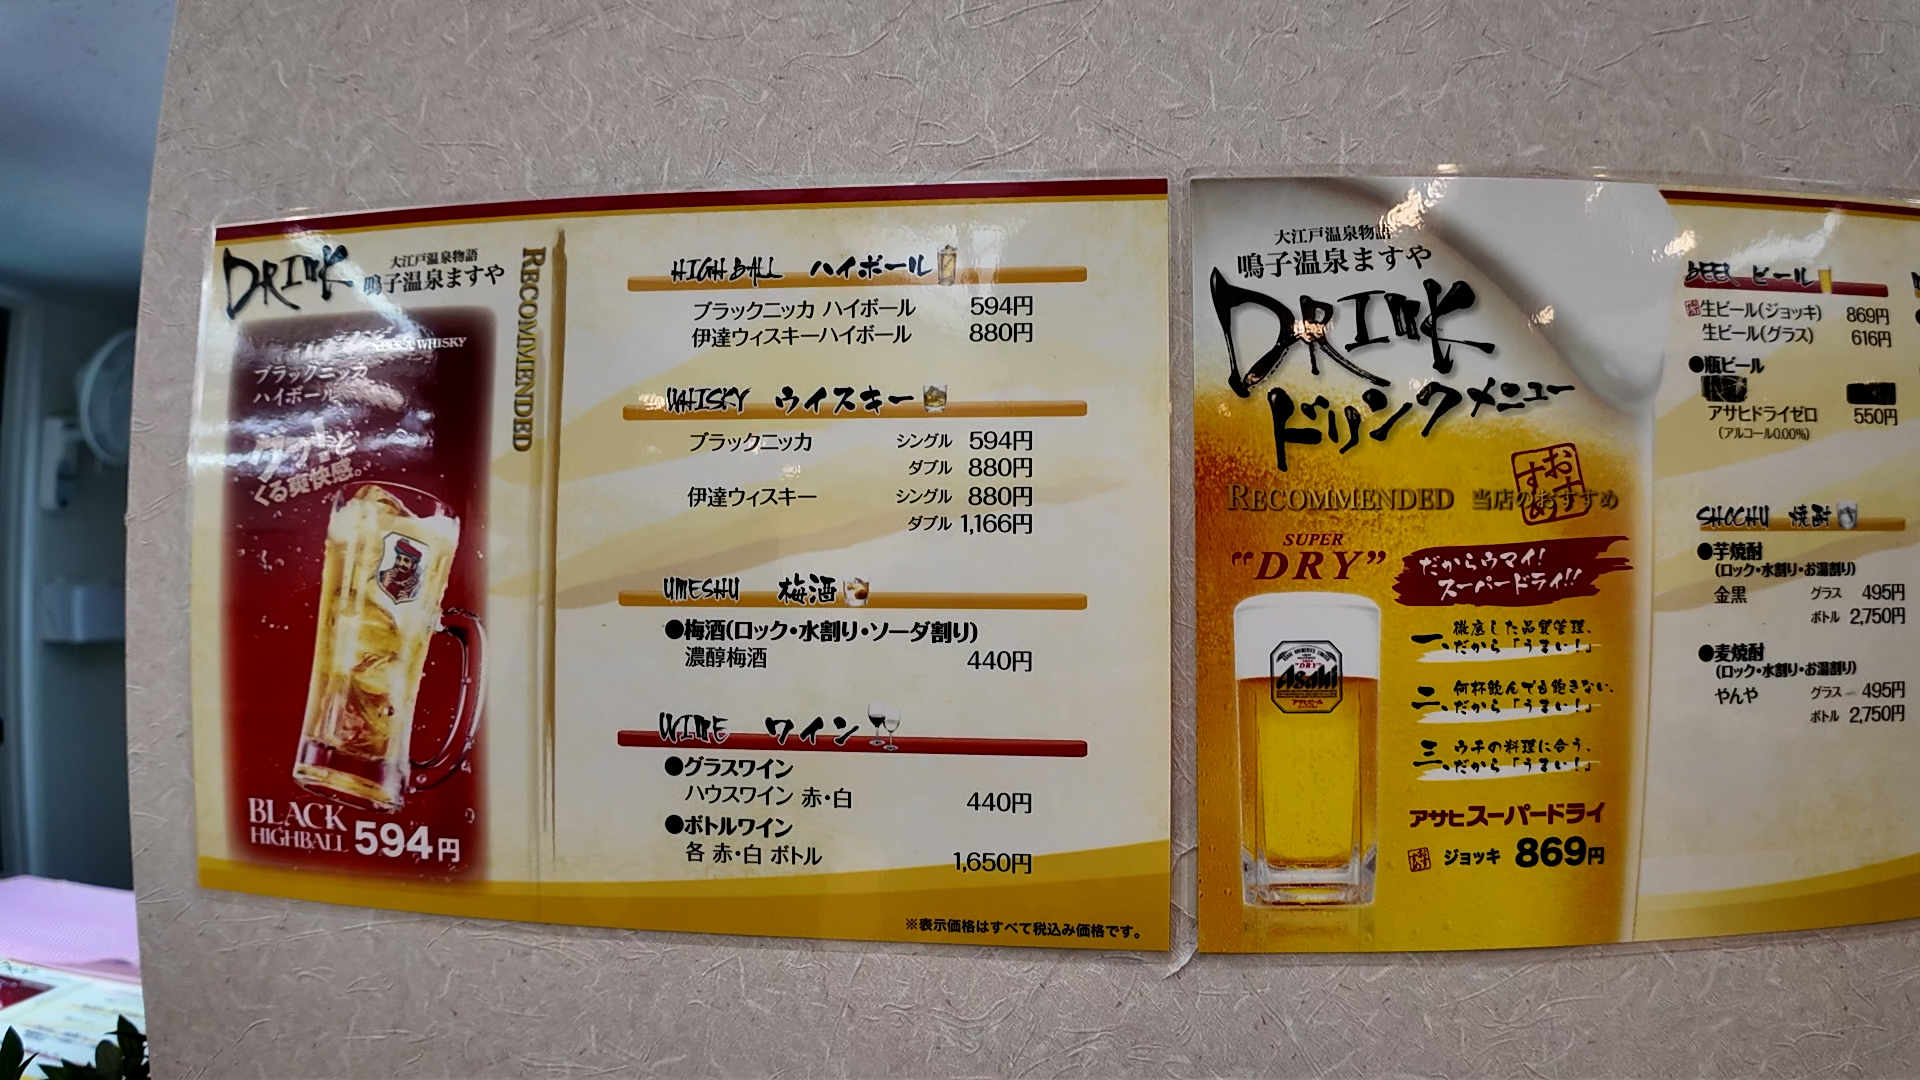 DRINK
大江戸温泉物語
鳴子温泉ますや
RECOMMENDED
WHISKY
ブラックニッカ
ハイボール
クッ!と
くる爽快感。
BLACK
HIGHBALL 594円
HIGH BALL ハイボール
ブラックニッカ ハイボール 594円
伊達ウィスキーハイボール 880円
WHISKY ウイスキー
ブラックニッカ シングル 594円
ダブル 880円
伊達ウィスキー シングル 880円
ダブル 1,166円
UMESHU 梅酒
●梅酒(ロック・水割り・ソーダ割り)
濃醇梅酒 440円
WINE ワイン
●グラスワイン
ハウスワイン 赤・白 440円
●ボトルワイン
各 赤・白 ボトル 1,650円
※表示価格はすべて税込み価格です。
大江戸温泉物語
鳴子温泉ますや
DRINK
ドリンクメニュー
おすすめ
RECOMMENDED 当店のおすすめ
SUPER
"DRY"
だからウマイ!
スーパードライ!!
Asahi
アサヒビール
一、徹底した品質管理、
だから「うまい!」
二、何杯飲んでも飽きない、
だから「うまい!」
三、ウチの料理に合う、
だから「うまい!」
アサヒスーパードライ
おすすめ ジョッキ 869円
BEER ビール
生ビール(ジョッキ) 869円
生ビール(グラス) 616円
●瓶ビール
アサヒドライゼロ 550円
(アルコール0.00%)
SHOCHU 焼酎
●芋焼酎
(ロック・水割り・お湯割り)
金黒 グラス 495円
ボトル 2,750円
●麦焼酎
(ロック・水割り・お湯割り)
やんや グラス 495円
ボトル 2,750円